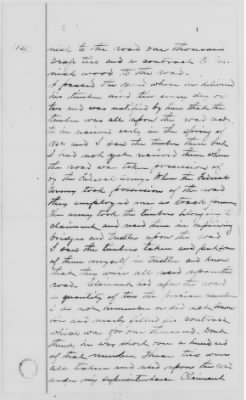 nish to the road one thousand
cross ties and a contract to fur-
nish wood to the road.
I passed the Yard when he delivered
his timber and ties every day or
two and was notified by him that the
timber was all upon the road ready
to be received early in the Spring of
and I saw the timber there but
I had not yet received them when
the road was taken possession of
by the Federal Army. When the Federal
Army took possession of the road
they employed me as track foreman
the army took the timbers belonging to
claimant and used them in repairing
bridges and trestles upon the road
I saw the timber taken and put some
of them myself in trestles and know
that they were all used upon the
road. Claimant had upon the road
a quantity of ties the precise number
I do not remember or did not know
him had nearly filled his contract
which was for one thousand. Don't
think he was short over a hundred
of that number. These ties were
all taken and used upon the road
under my superintendence. Claimant